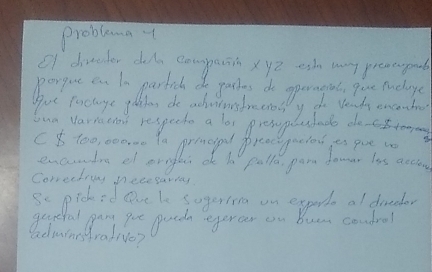 problema 1
El director de la compañia XYZ esta muy preocupado
porque en la partida de gastos de operacion, que incluye
que incluye gastos de administracion y de Venta encontro
una variacion respecto a lo presupuestado de
C$ 100,000.00 la principal preocupación es que no
encuentra el origen de la falla, para tomar las acciones
correctivas necesarias.
Se pide: ¿Que le sugeriria un experto al director
general para que pueda ejercer un buen control
administrativo?